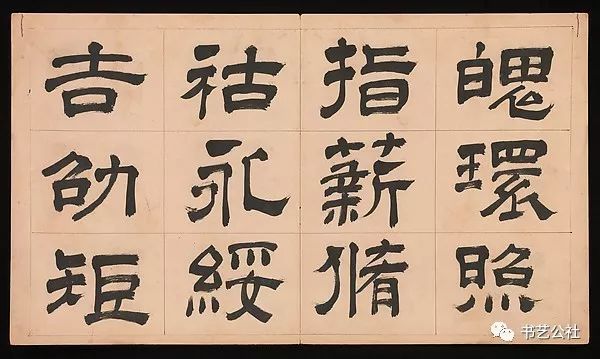 魄環照
指薪脩
祜永綏
吉劭矩
书艺公社